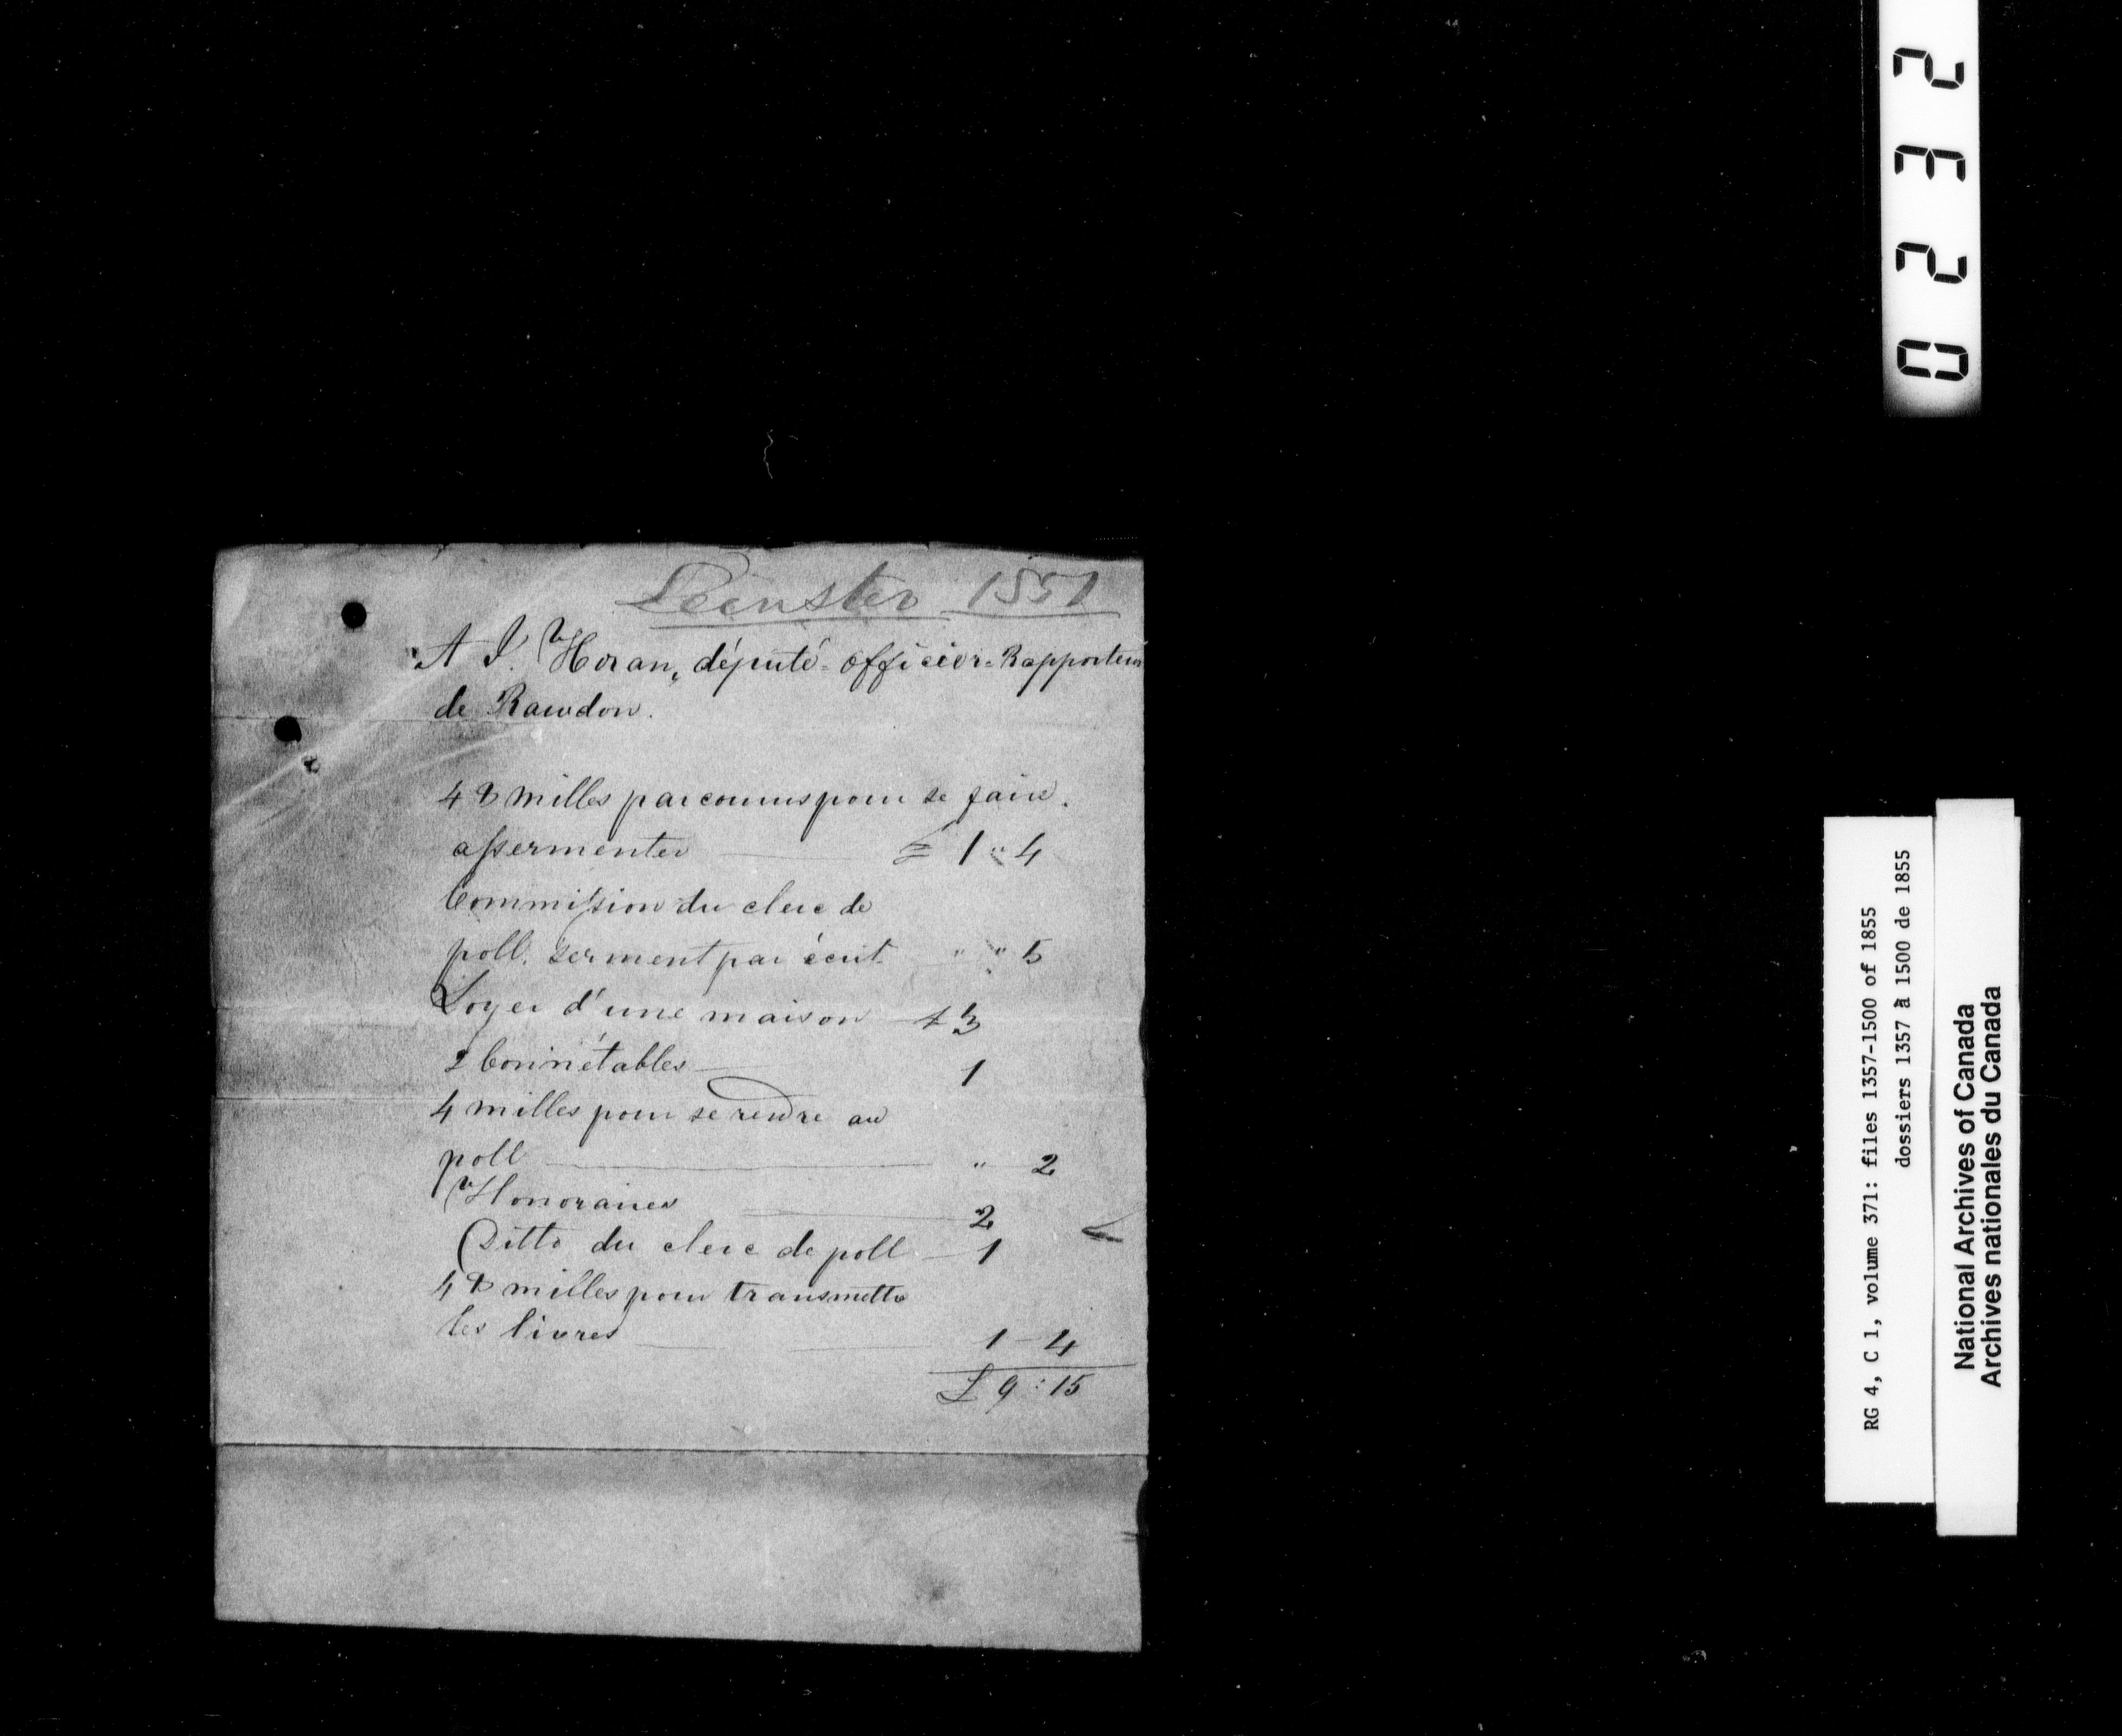 Leinster 1851
A J. Horan, député-officier-Rapporteur
de Rawdon.
48 milles parcourus pour se faire.
assermenter £ 1 " 4
Commission du clerc de
poll. serment par écrit " " 5
Loyer d'une maison 3
2 Connétables 1
4 milles pour se rendre au
poll " 2
Honoraires 2
Ditto du clerc de poll 1
48 milles pour transmettre
les livres 1 - 4
£ 9 : 15
0232
RG 4, C 1, volume 371: files 1357-1500 of 1855
dossiers 1357 à 1500 de 1855
National Archives of Canada
Archives nationales du Canada